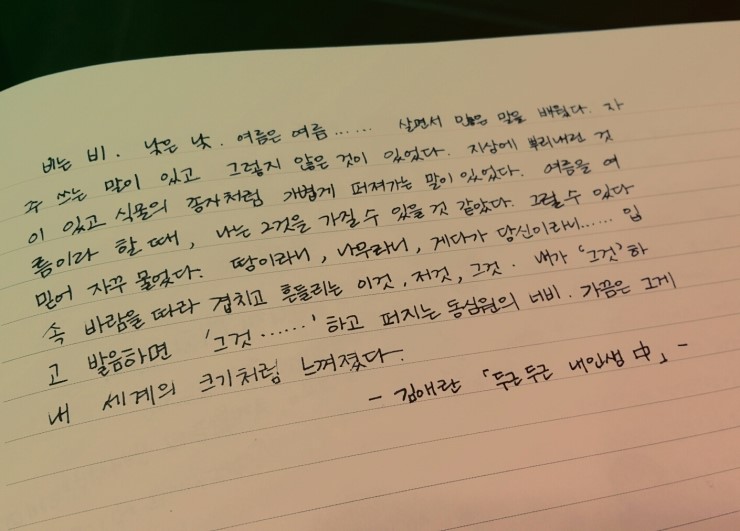 비는 비. 낮은 낮. 여름은 여름…… 살면서 많은 말을 배웠다. 자
주 쓰는 말이 있고 그렇지 않은 것이 있었다. 지상에 뿌리내린 것
이 있고 식물의 종자처럼 가볍게 퍼져가는 말이 있었다. 여름을 여
름이라 할 때, 나는 그것을 가질 수 있을 것 같았다. 그럴 수 있다
믿어 자꾸 물었다. 땅이라니, 나무라니, 게다가 당신이라니…… 입
속 바람을 따라 겹치고 흔들리는 이것, 저것, 그것. 내가 '그것'하
고 발음하면 '그것……' 하고 퍼지는 동심원의 너비. 가끔은 그게
내 세계의 크기처럼 느껴졌다.
- 김애란 「두근두근 내인생 中」 -